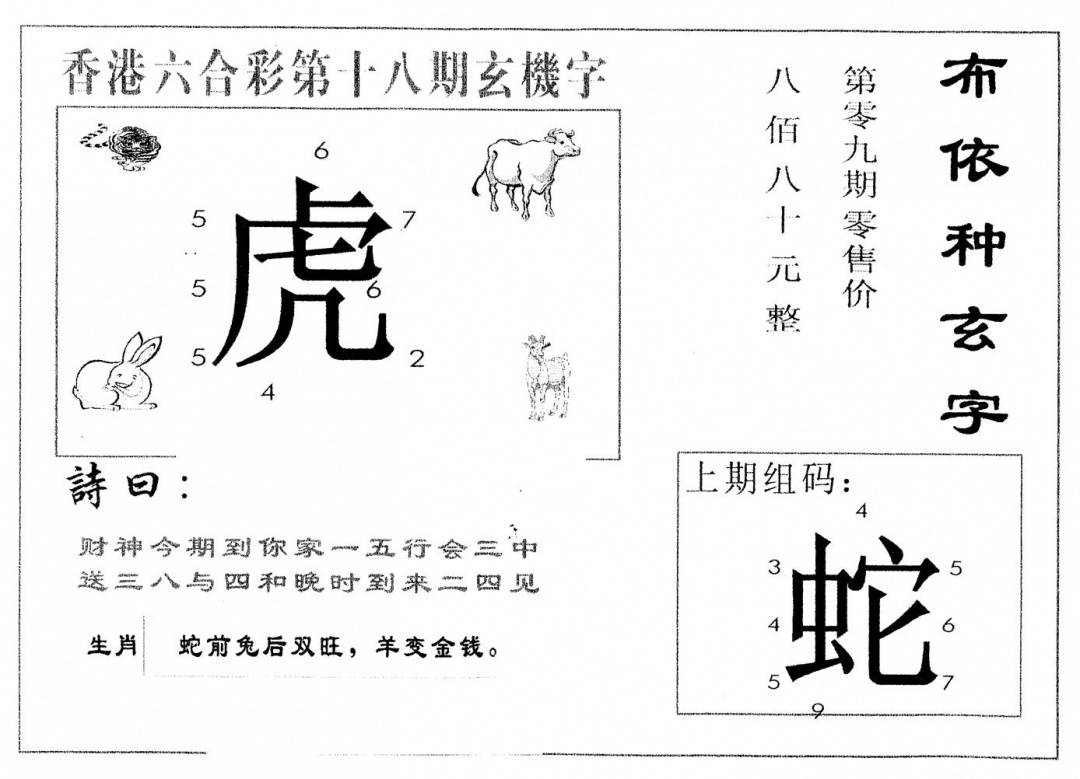 香港六合彩第十八期玄機字
6
5
7
虎
5
6
5
2
4
詩曰：
财神今期到你家一五行会三中
送三八与四和晚时到来二四见
生肖 蛇前兔后双旺，羊变金钱。
布依种玄字
第零九期零售价
八佰八十元整
上期组码：
4
3
5
蛇
4
6
5
7
9